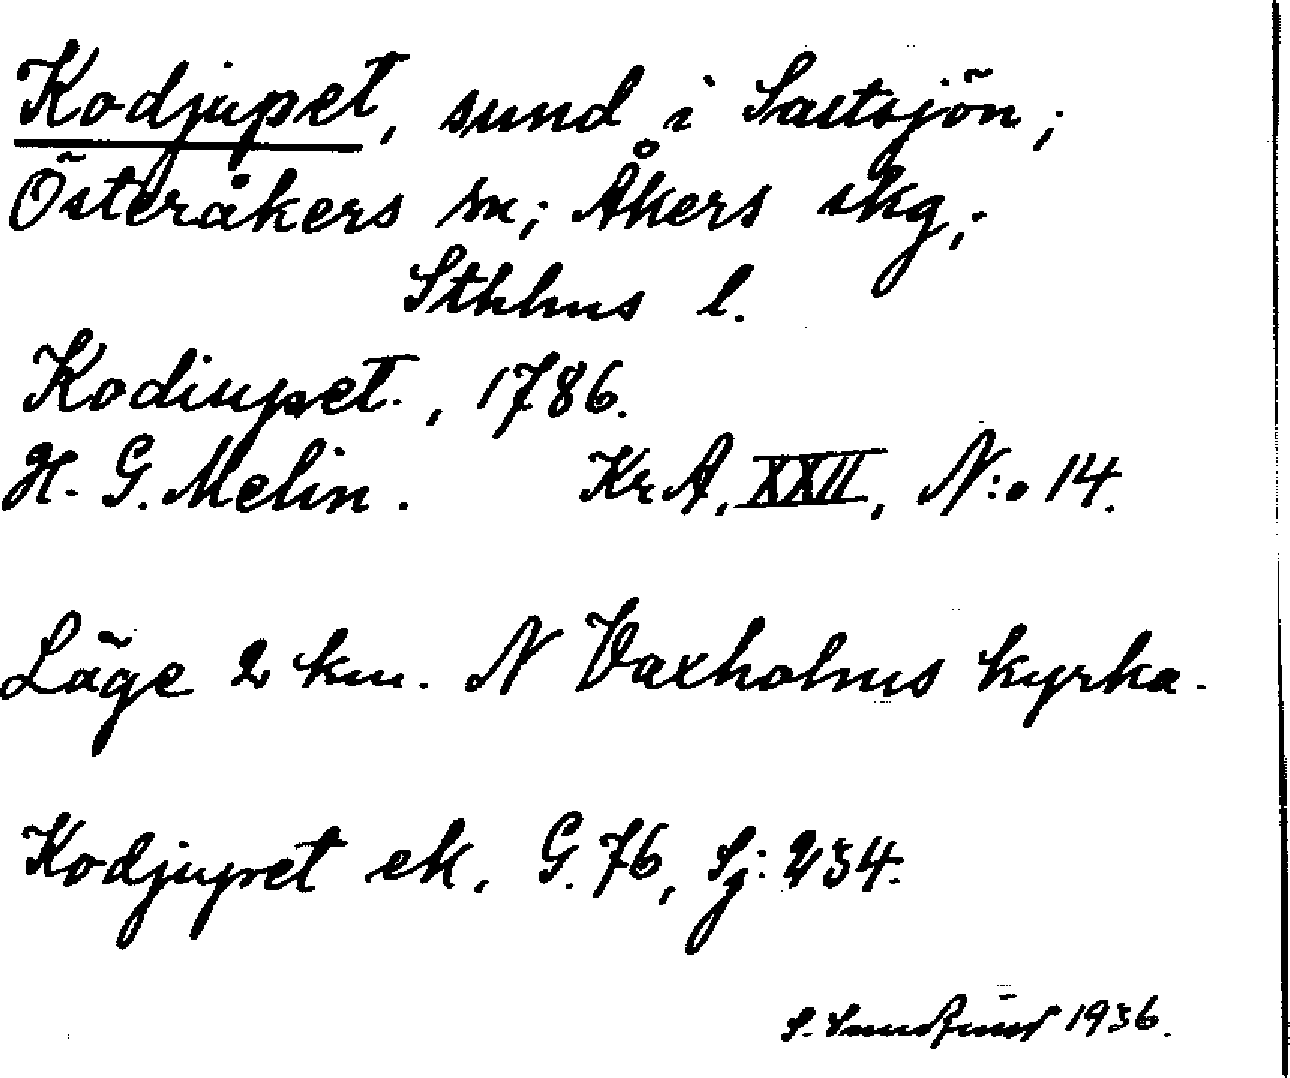 Kodjupet, sund i Saltsjön;
Österåkers sn; Åkers skg;
Sthlms l.
Kodiupet., 1786.
H. G. Melin. Kr.A, XXII, N:o 14.
Läge 2 km. N Vaxholms kyrka.
Kodjupet ek. G. 76, Sj: 234.
S. 1936.